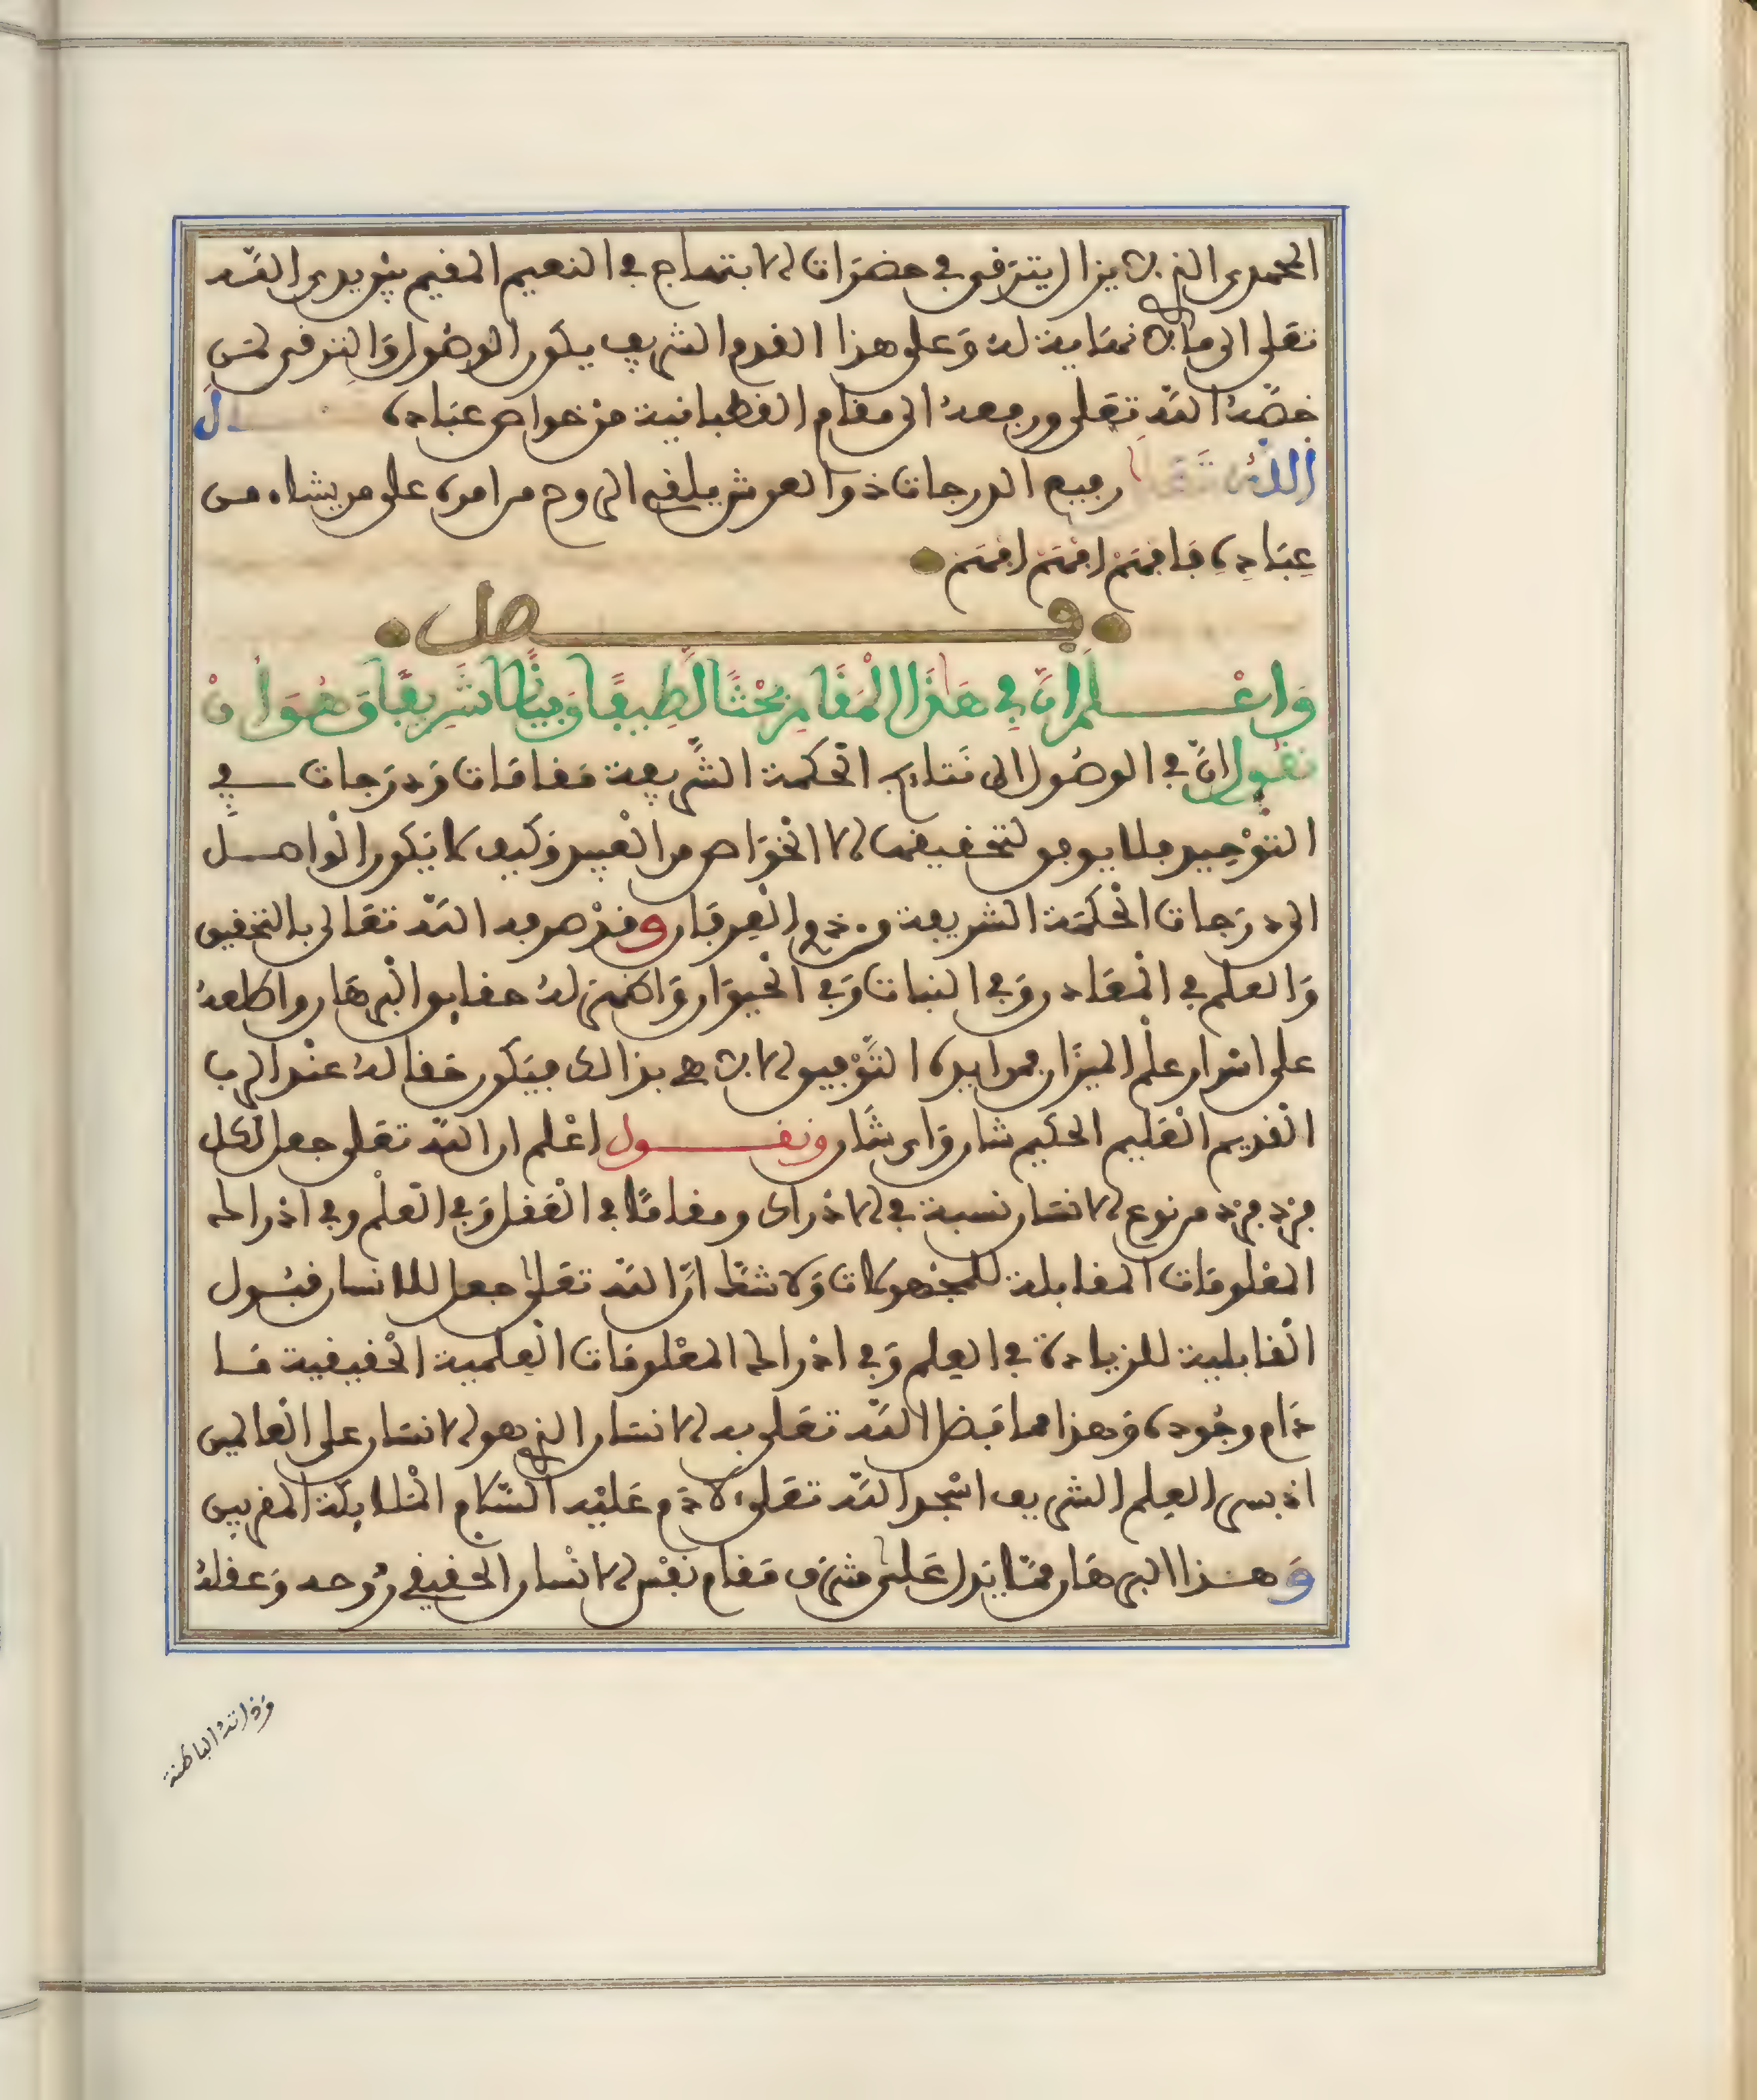 المحمدي الذي لا يزال يترقى في حضرات الابتهاج في النعيم المقيم بين يدي الله
تعلى الى ما لا نهاية له وعلى هذا القدم الشريف يكون الوصول والترقي لمن
خصه الله تعلى ورفعه الى مقام القطبانية من خواص عباده ل
الله تعلى رفيع الدرجات ذوا العرش يلقي الروح من امره على من يشاء من
عباده فافهم افهم افهم
فصل
واعلم ان في هذا المقام بحثا لطيفا وبيانا شريفا وهو ان
نقول ان في الوصول الى نتايج الحكمة الشريفة مقامات ودرجات في
التوحيد فلا يوفق لتحقيقها الا الخواص من العبيد وكيف لا يكون الواصل
الى درجات الحكمة الشريفة من ذوي العرفان وقد صرفه الله تعالى بالتحقيق
والعلم في المعادن وفي النبات وفي الحيوان واظهر له حقايق البرهان واطلعه
على اسرار علم الميزان بموايده التوفيق الا لاهي بذالك فيكون مقاله عند الرب
القديم العليم الحكيم شان واي شان ونقول اعلم ان الله تعلى جعل لكل
فرد فرد من نوع الانسان نسبة في الادراك ومقاما في العقل وفي العلم وفي ادراك
المعلومات المقابلة للمجهولات ولا شك ان الله تعلى جعل للانسان قبول
القابلية للزيادة في العلم وفي ادراك المعلومات العلمية الحقيقية ما
دام وجوده وهذا مما فضل الله تعلى به الانسان الذي هو الانسان على العالمين
اذ بسر العلم الشريف اسجد الله تعلى لادم عليه السلام الملايكة المقربين
وهذا البرهان مما يدل على شرف مقام نفس الانسان الحقيقي روحه وعقله
وذاته الباطنة